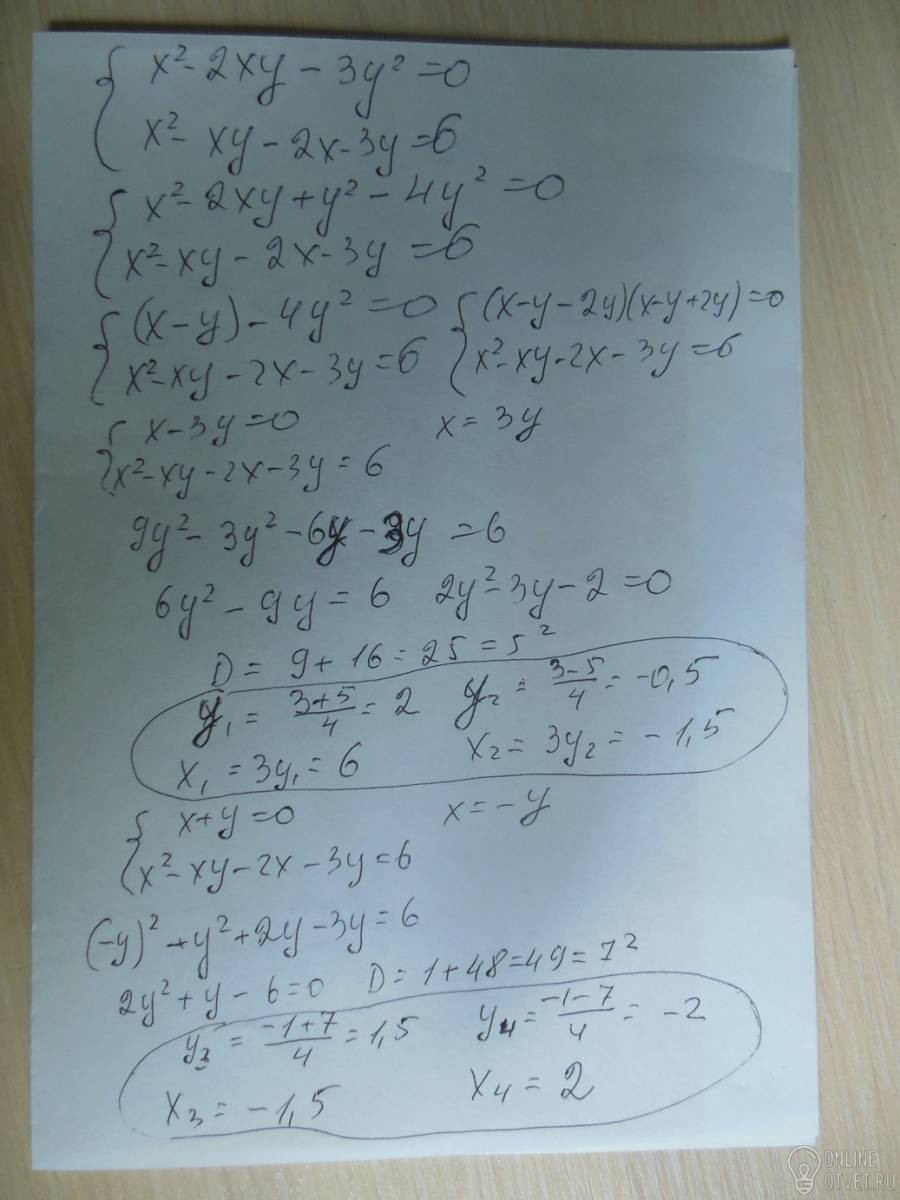 x² - 2xy - 3y² = 0
x² - xy - 2x - 3y = 6
x² - 2xy + y² - 4y² = 0
x² - xy - 2x - 3y = 6
(x - y) - 4y² = 0
x² - xy - 2x - 3y = 6
(x - y - 2y)(x - y + 2y) = 0
x² - xy - 2x - 3y = 6
x - 3y = 0 x = 3y
x² - xy - 2x - 3y = 6
9y² - 3y² - 6y - 3y = 6
6y² - 9y = 6 2y² - 3y - 2 = 0
D = 9 + 16 = 25 = 5²
y₁ = (3+5)/4 = 2 y₂ = (3-5)/4 = -0,5
x₁ = 3y₁ = 6 x₂ = 3y₂ = -1,5
x + y = 0 x = -y
x² - xy - 2x - 3y = 6
(-y)² + y² + 2y - 3y = 6
2y² + y - 6 = 0 D = 1 + 48 = 49 = 7²
y₃ = (-1+7)/4 = 1,5 y₄ = (-1-7)/4 = -2
x₃ = -1,5 x₄ = 2
ONLINE
OTVET.RU